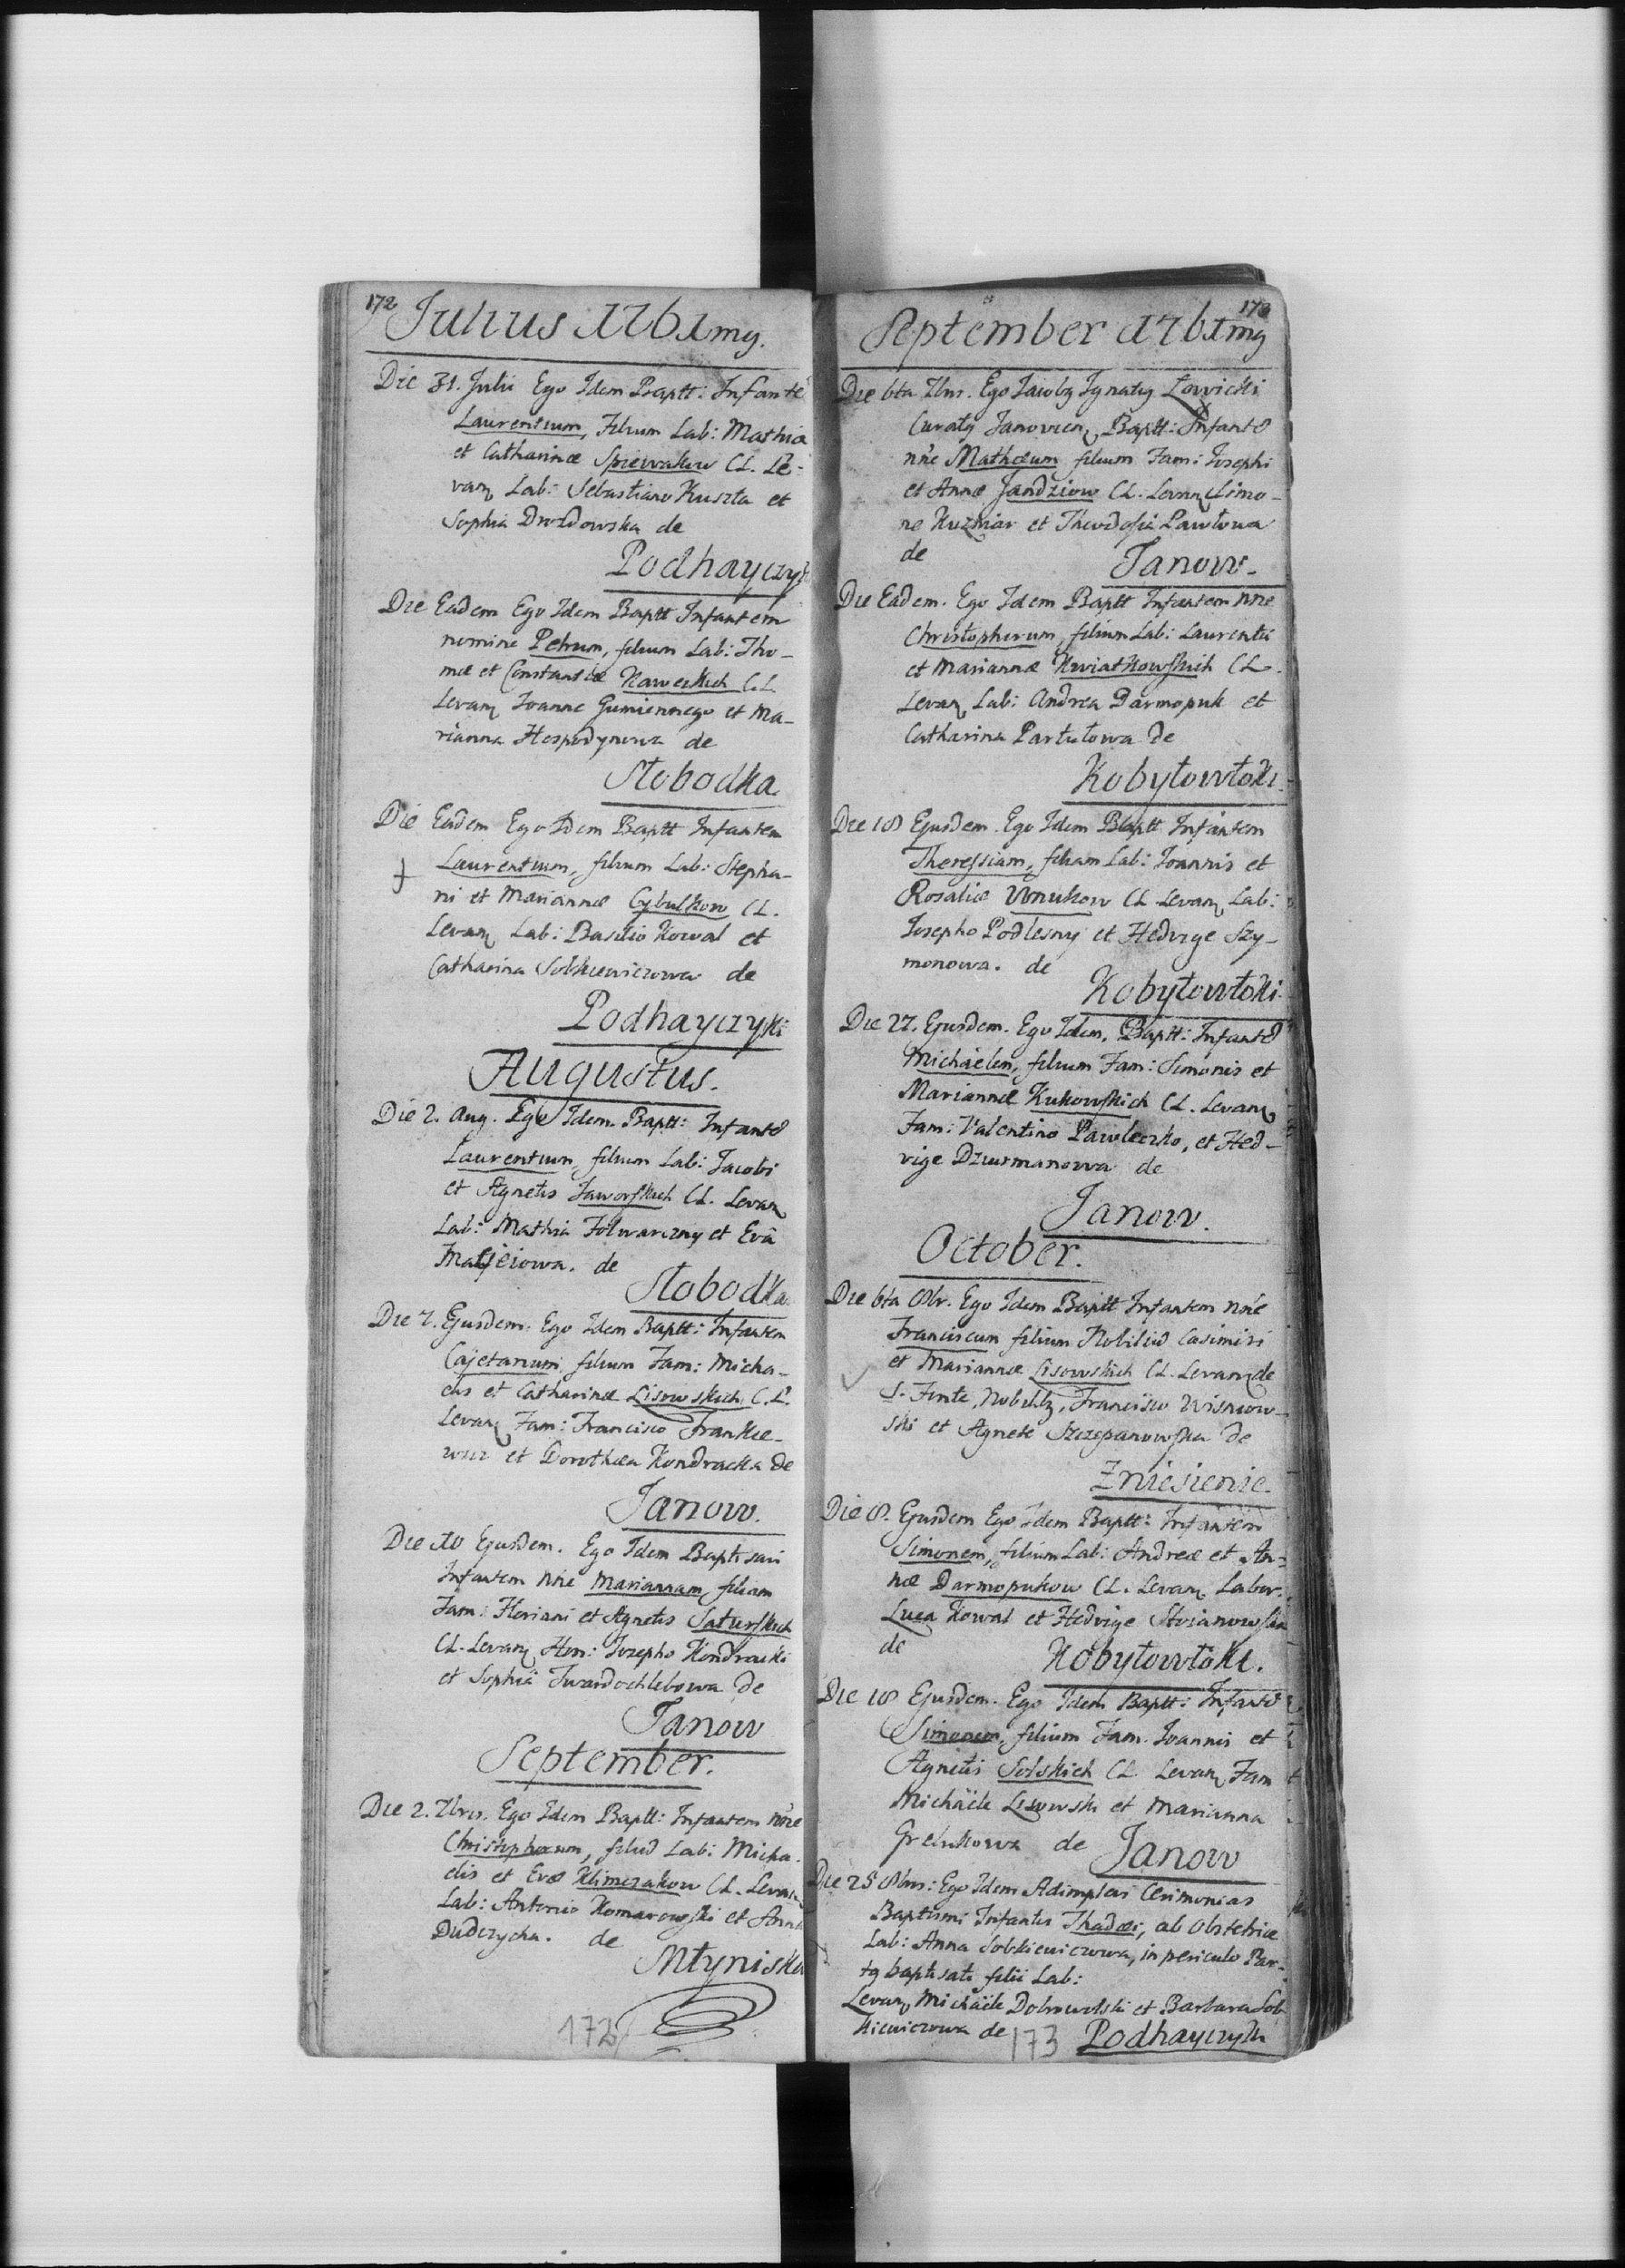 172
Julius 1761mg.
Die 31. Julii Ego Idem Baptt: Infantē
Laurentium, Filium Lab: Mathia
et Catharinæ Spiewakow CL. Le-
vanꝫ Lab: Sebastiano Kuszta et
Sophia Drozdowska de
Podhayczyk
Die Eadem Ego Idem Baptt Infantem
nomine Petrum, filium Lab: Tho-
mæ et Constantiæ Kaweckich C.L.
Levanꝫ Joanne Gumiennego et Ma-
rianna Hospodynowa de
Słobodka
Die Eadem Ego Idem Baptt Infantem
Laurentium, filium Lab: Stepha-
ni et Mariannæ Cybulkow CL.
Levanꝫ Lab: Basilio Kowal et
Catharina Sobkiewiczowa de
Podhayczyki
Augustus.
Die 2. Aug. Ego Idem. Baptt: Infantē
Laurentium, filium Lab: Jacobi
et Agnetis Jaworskich CL. Levanꝫ
Lab: Mathia Folwarczny et Eva
Macjeiowa. de
Słobodka
Die 7. Ejusdem. Ego Idem Baptt: Infantem
Cajetanum, filium Fam: Micha-
elis et Catharinæ Lisowskich C.L.
Levanꝫ Fam: Francisco Frankie-
wicz et Dorothæa Kondracka de
Janow.
Die 10 Ejusdem. Ego Idem Baptisavi
Infantem nñe Mariannam, filiam
Fam: Floriani et Agnetis Saturskich
CL. Levanꝫ Hon: Josepho Kondracki
et Sophia Twardochlebowa de
Janow
September.
Die 2. 7bris. Ego Idem Baptt: Infantem nñe
Christophorum, filiū Lab: Micha-
elis et Evæ Klimczakow CL. Levanꝫ
Lab: Antonio Komarowski et Anna
Dudczycha. de
Młyniska
172
173
September 1761mg
Die 6ta 7bris. Ego Jacobꝫ Ignatiꝫ Łowicki
Curatꝫ Janovien, Baptt: Infantē
nñe Mathæum filium Fam: Josephi
et Annæ Jandziow CL. Levanꝫ Simo-
ne Kuzniar et Theodosia Pawłowa
de Janow.
Die Eadem. Ego Idem Baptt Infantem nñe
Christophorum, filium Lab: Laurentii
et Mariannæ Kwiatkowskich CL.
Levanꝫ Lab: Andrea Darmopuk et
Catharina Partułowa de
Kobyłowłoki.
Die 18 Ejusdem. Ego Idem Baptt Infantem
Theressiam, filiam Lab: Joannis et
Rosaliæ Wnukow CL Levanꝫ Lab:
Josepho Podlesny et Hedvige Szy-
monowa. de
Kobyłowłoki.
Die 27. Ejusdem. Ego Idem. Baptt: Infantē
Michaëlem, filium Fam: Simonis et
Mariannæ Kukowskich CL. Levanꝫ
Fam: Valentino Pawleczko, et Hed-
vige Dziurmanowa de
Janow.
October.
Die 6ta 8br. Ego Idem Baptt Infantem nñe
Franciscum filium Nobiliū Casimiri
et Mariannæ Lisowskich CL. Levanꝫ de
S. Fonte, Nobilibꝫ, Francisco Wisniow-
ski et Agnete Szczepanowska de
Zniesienie.
Die 8. Ejusdem Ego Idem Baptt: Infantem
Simonem, filium Lab: Andreæ et An-
næ Darmopukow CL. Levanꝫ Labor:
Luca Kowal et Hedvige Stoianowska
de Kobyłowłoki.
Die 18 Ejusdem. Ego Idem Baptt: Infantē
Simonem, filium Fam. Joannis et
Agnetis Solskich CL Levanꝫ Fam
Michaële Lisowski et Marianna
de Janow
Die 25 8bris: Ego Idem Adimplevi Cerimonias
Baptismi Infantis Thadæi, ab Obstetrice
Lab: Anna Sobkiewiczowa, in periculo Par-
tꝫ baptisati filii Lab:
Levanꝫ Michaële Dobrowolski et Barbara Sob-
kiewiczowa de Podhayczyki
173